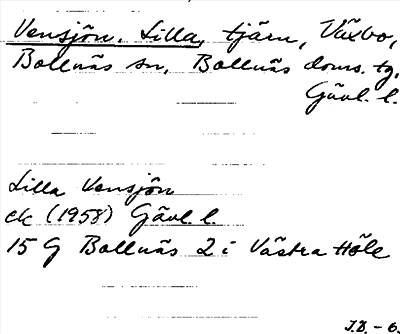 Vensjön, Lilla, tjärn, Växbo,
Bollnäs sn, Bollnäs doms. tg,
Gävl. l.
Lilla Vensjön
ek (1958) Gävl. l.
15 G Bollnäs 2 i Västra Höle
J.B. - 6.